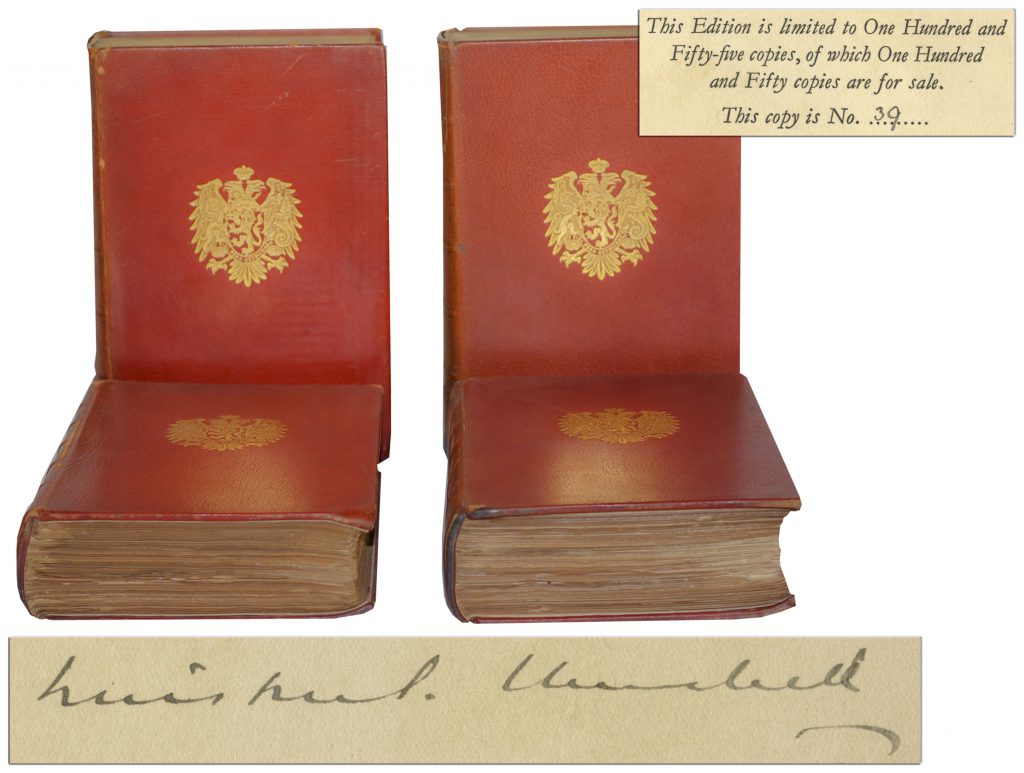 This Edition is limited to One Hundred and
Fifty-five copies, of which One Hundred
and Fifty copies are for sale.
This copy is No. 39
Winston S. Churchill